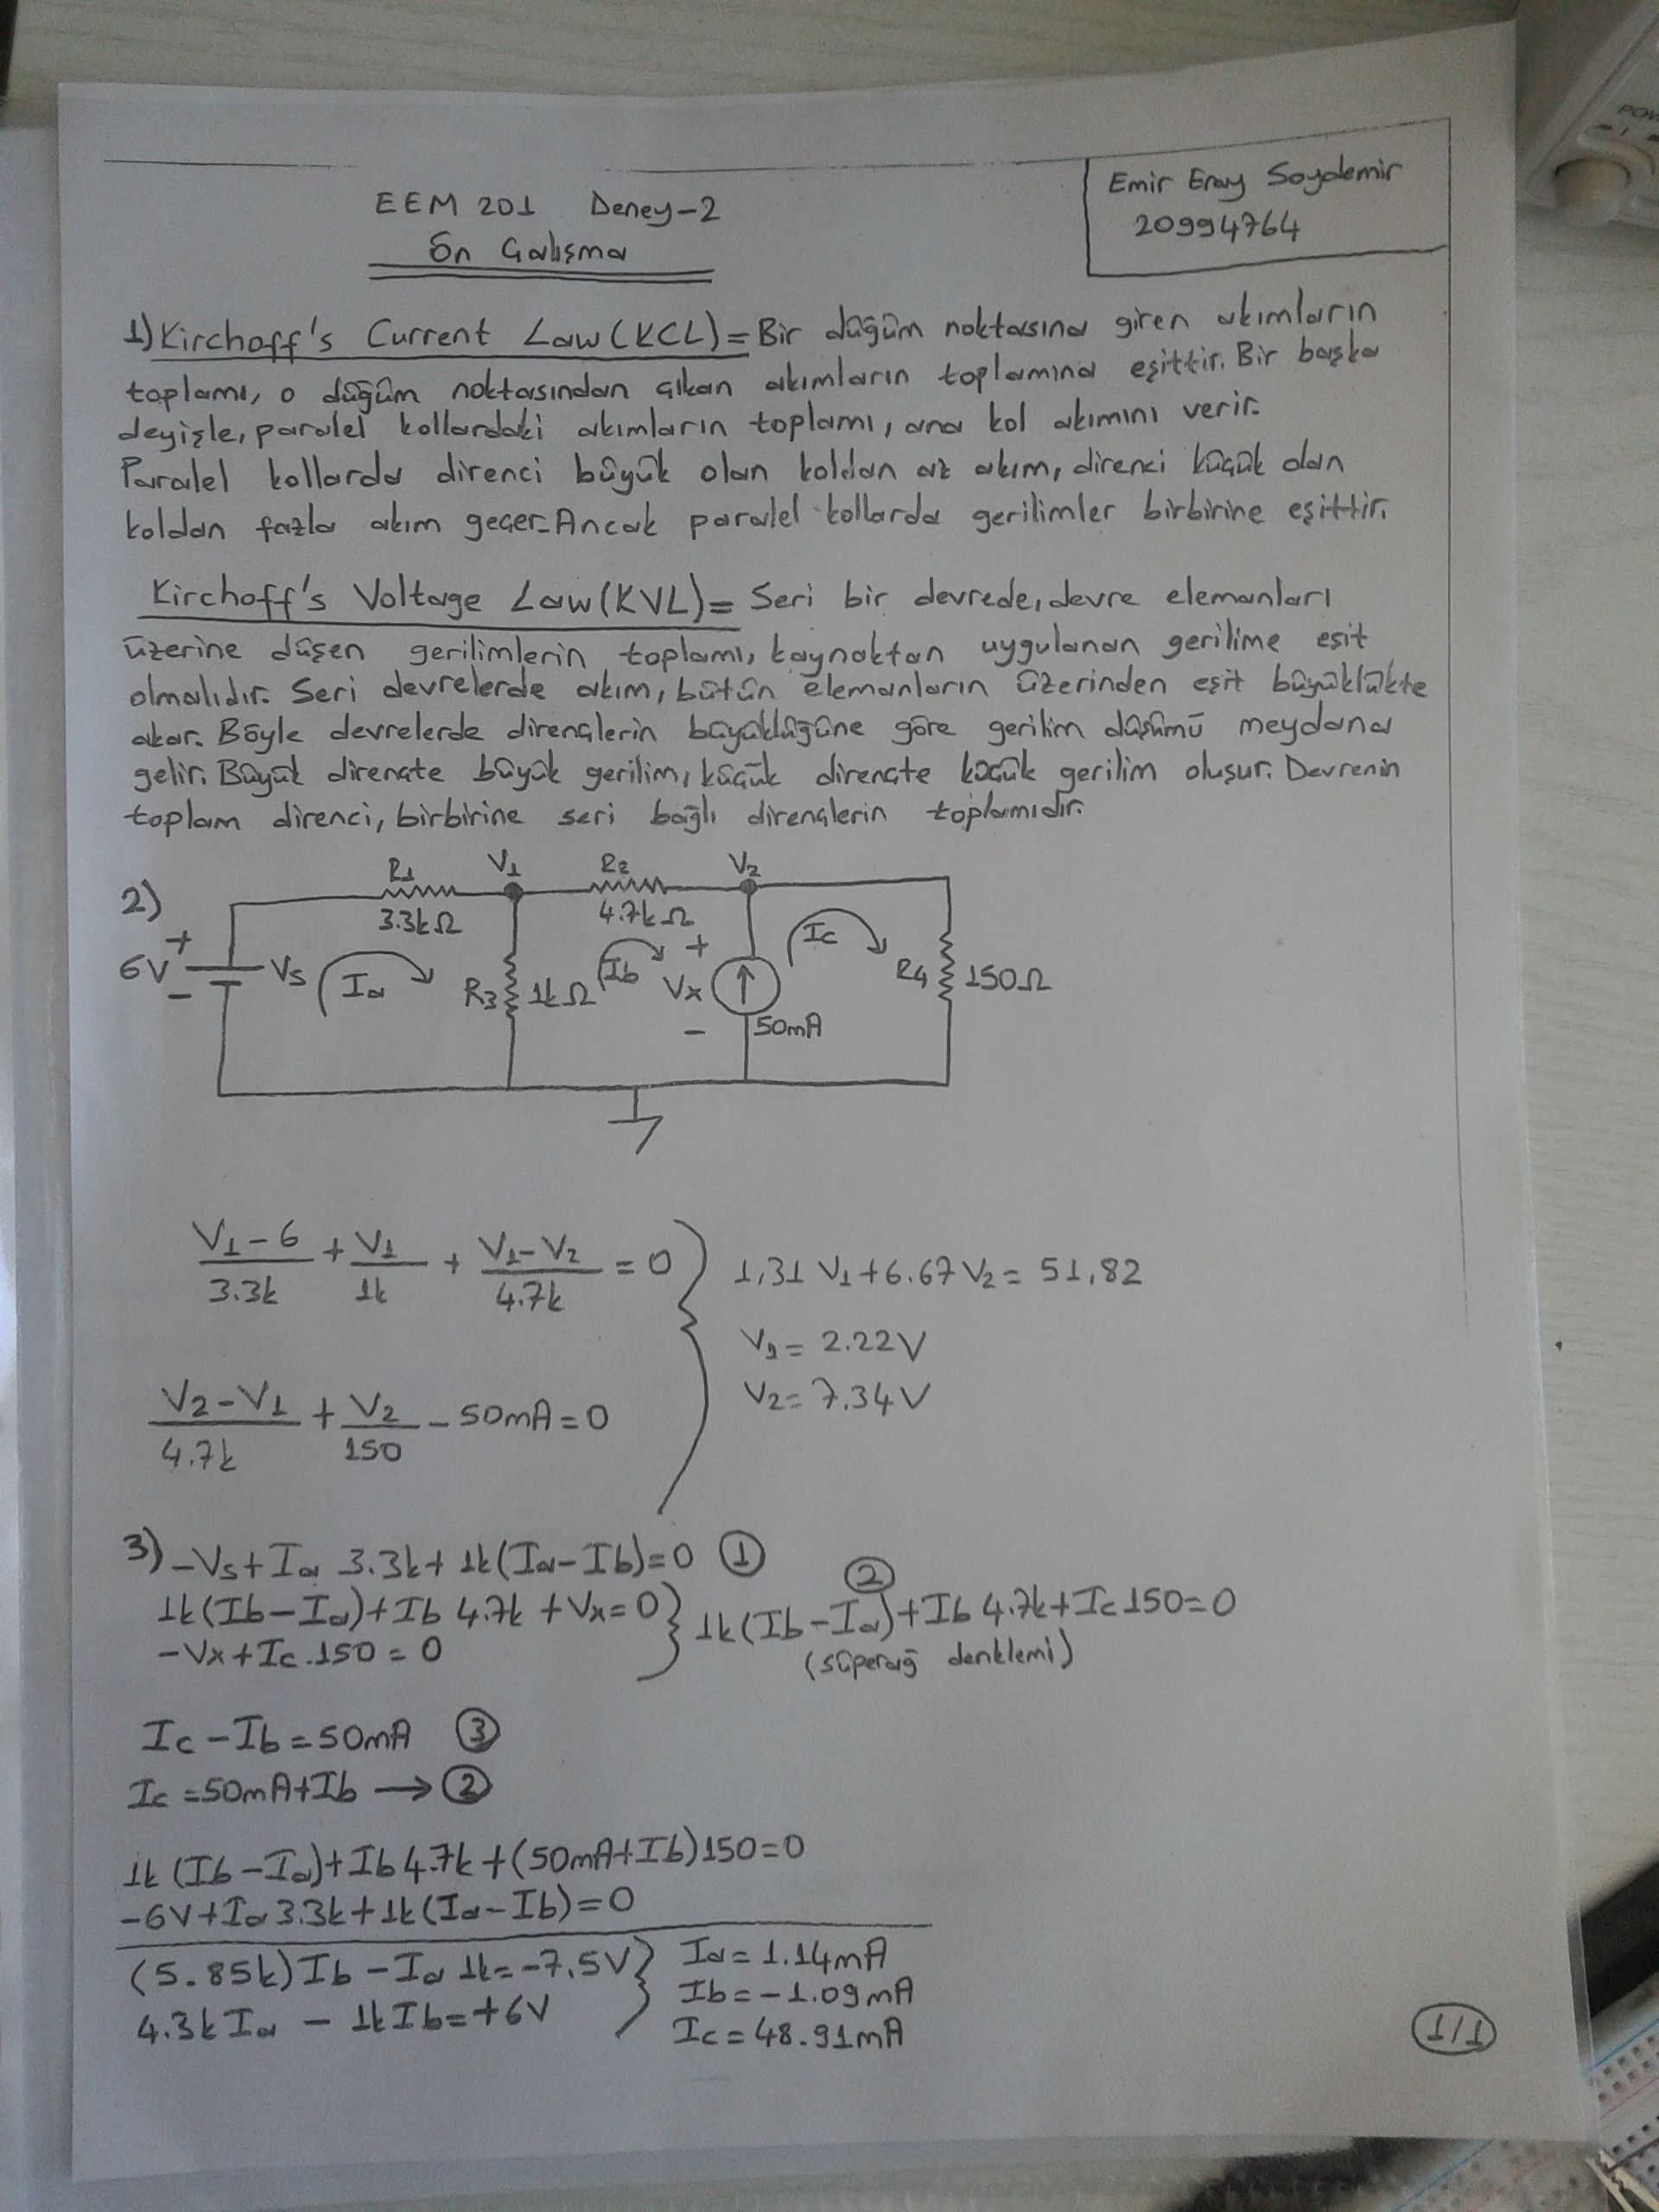 EEM 201 Deney-2
Ön Çalışma
Emir Eray Soydemir
20994764
1) Kirchoff's Current Law (KCL) = Bir düğüm noktasına giren akımların
toplamı, o düğüm noktasından çıkan akımların toplamına eşittir. Bir başka
deyişle, paralel kollardaki akımların toplamı, ana kol akımını verir.
Paralel kollarda direnci büyük olan koldan az akım, direnci küçük olan
koldan fazla akım geçer. Ancak paralel kollarda gerilimler birbirine eşittir.
Kirchoff's Voltage Law (KVL) = Seri bir devrede, devre elemanları
üzerine düşen gerilimlerin toplamı, kaynaktan uygulanan gerilime eşit
olmalıdır. Seri devrelerde akım, bütün elemanların üzerinden eşit büyüklükte
akar. Böyle devrelerde dirençlerin büyüklüğüne göre gerilim düşümü meydana
gelir. Büyük dirençte büyük gerilim, küçük dirençte küçük gerilim oluşur. Devrenin
toplam direnci, birbirine seri bağlı dirençlerin toplamıdır.
2)
R1 V1 R2 V2
3.3kΩ 4.7kΩ
6V + - Vs Ia R3 1kΩ Ib + Vx - 50mA Ic R4 150Ω
V1-6/3.3k + V1/1k + V1-V2/4.7k = 0
V2-V1/4.7k + V2/150 - 50mA = 0
1,31 V1 + 6.67 V2 = 51,82
V1 = 2.22V
V2 = 7.34V
3) -Vs + Ia 3.3k + 1k(Ia-Ib) = 0 ①
1k(Ib-Ia) + Ib 4.7k + Vx = 0
-Vx + Ic.150 = 0
②
1k(Ib-Ia) + Ib 4.7k + Ic 150 = 0
(süperağ denklemi)
Ic - Ib = 50mA ③
Ic = 50mA + Ib → ②
1k(Ib-Ia) + Ib 4.7k + (50mA+Ib)150 = 0
-6V + Ia 3.3k + 1k(Ia-Ib) = 0
(5.85k)Ib - Ia 1k = -7.5V
4.3k Ia - 1k Ib = +6V
Ia = 1.14mA
Ib = -1.09mA
Ic = 48.91mA
1/1